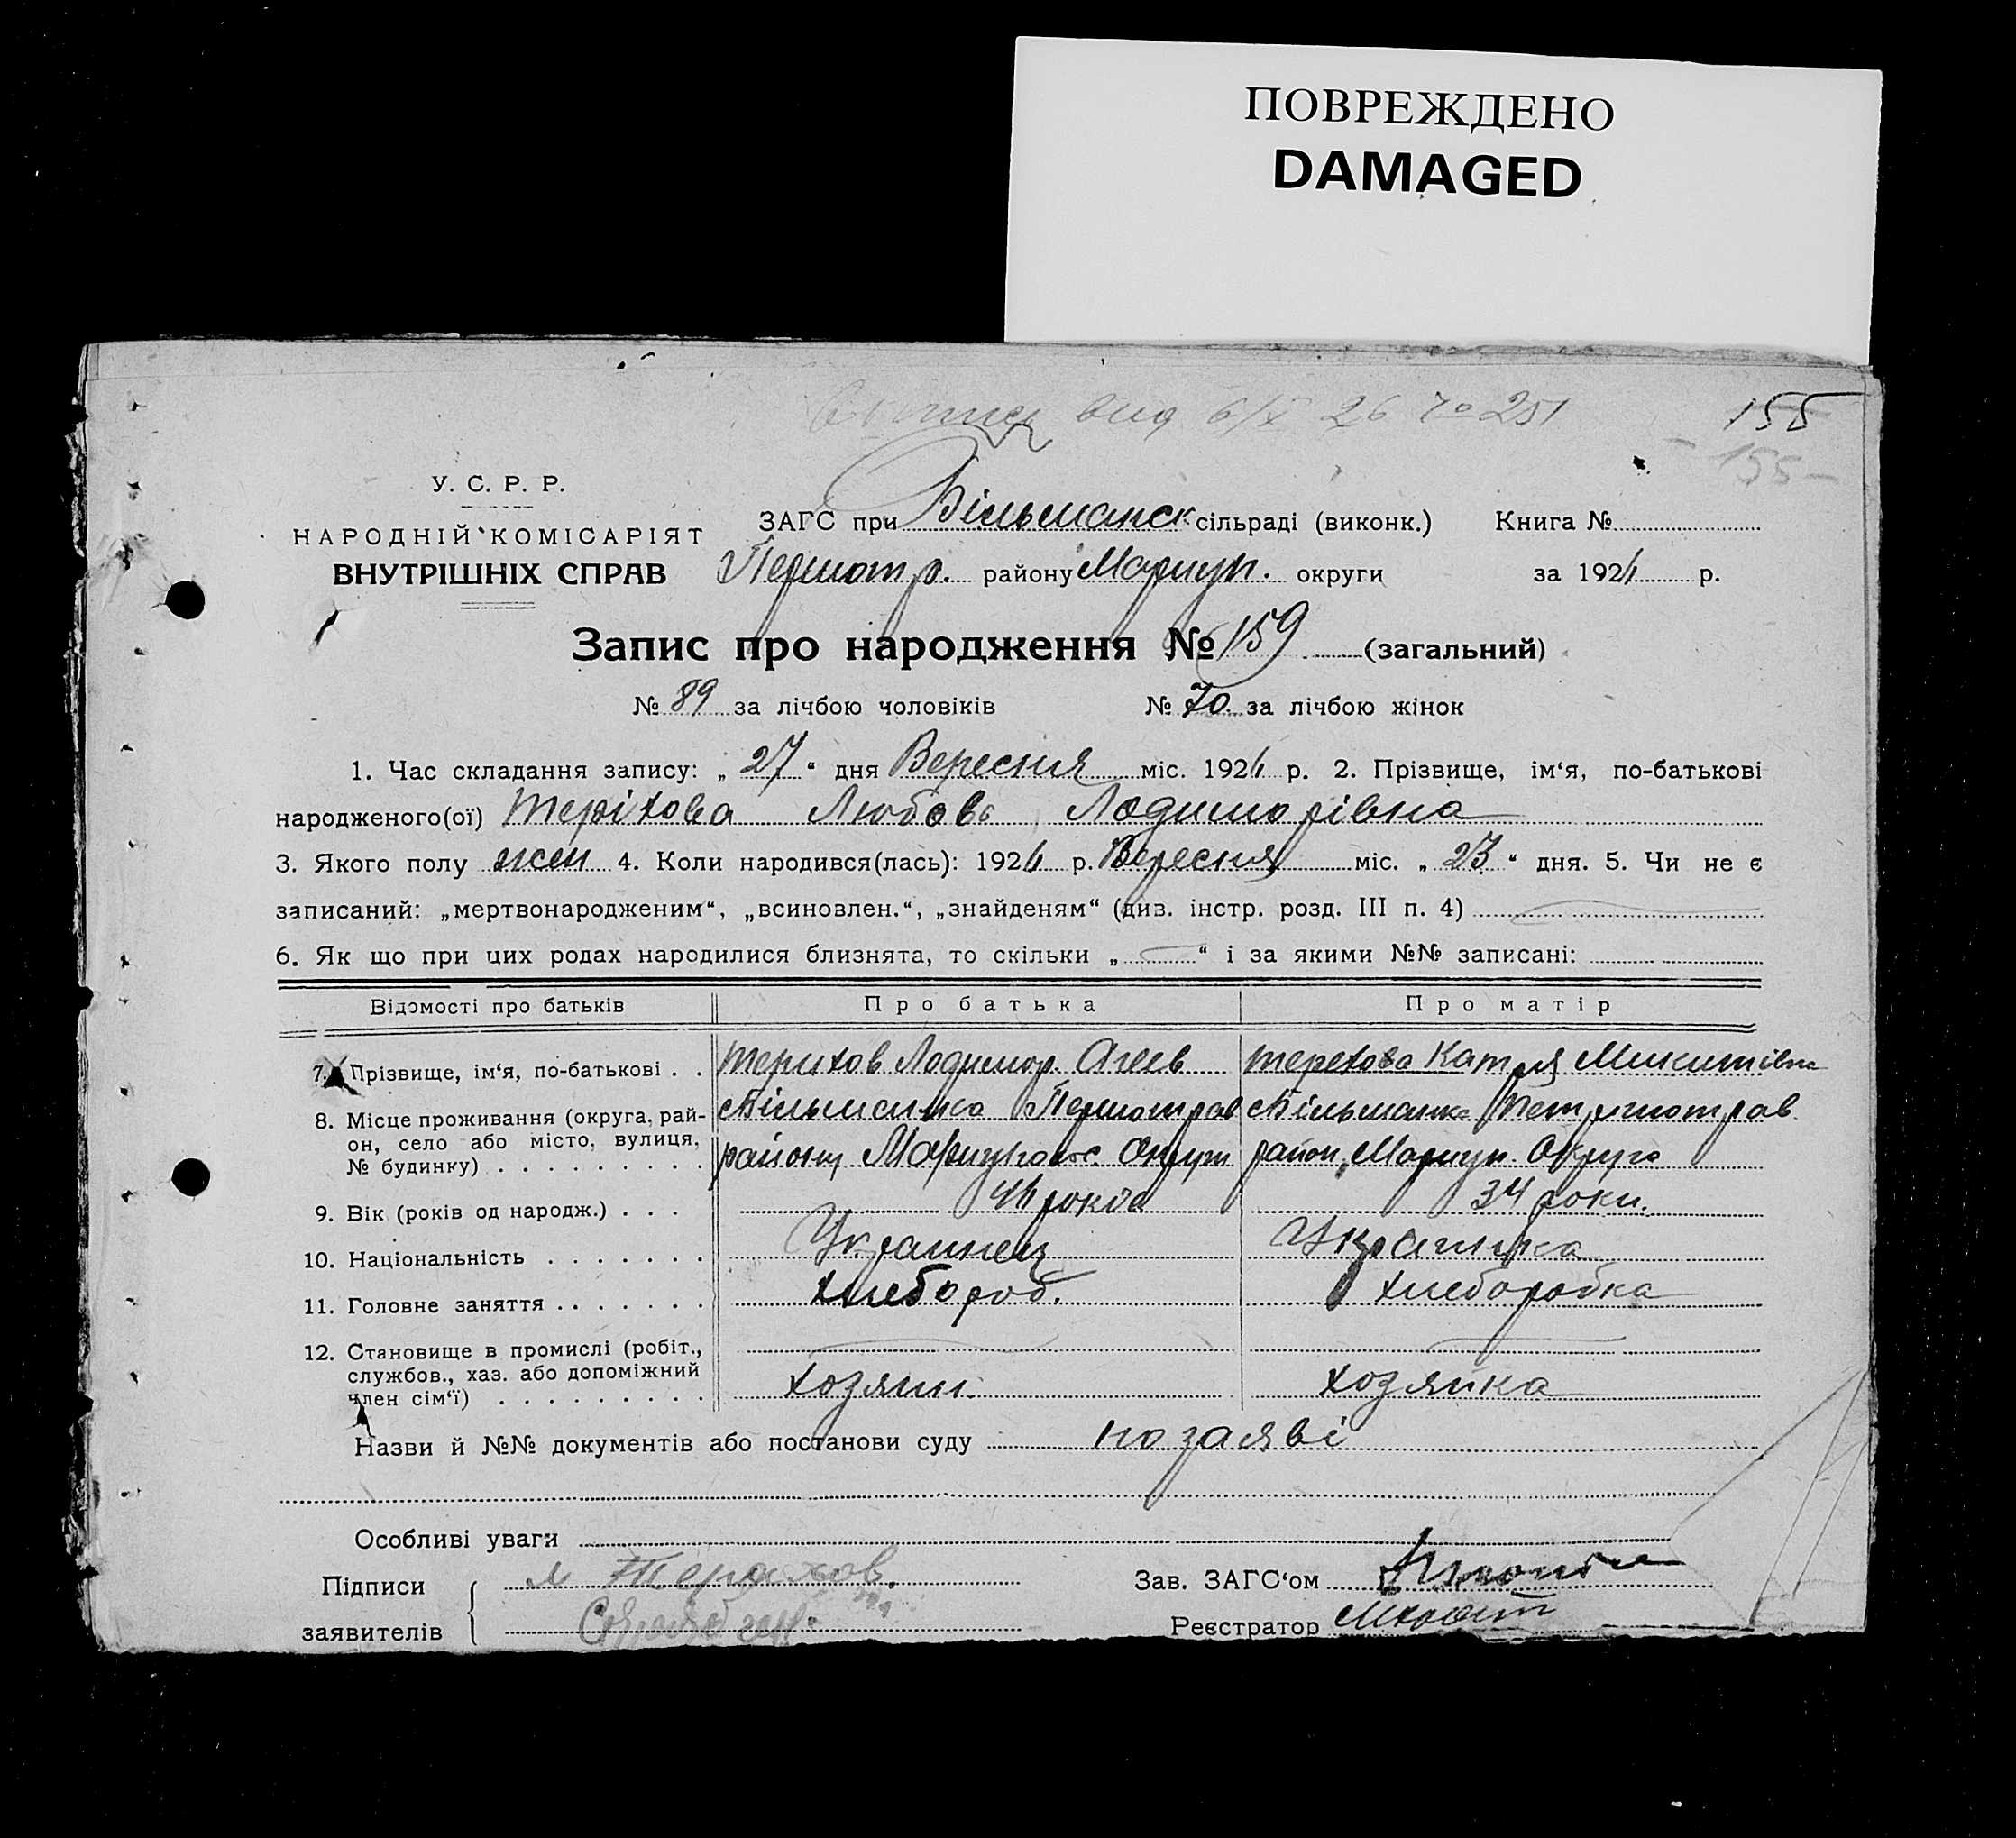 ПОВРЕЖДЕНО
DAMAGED
вид 6/X 26 № 251
155
155
У. С. Р. Р.
НАРОДНІЙ КОМІСАРІЯТ
ВНУТРІШНІХ СПРАВ
ЗАГС при Більманск сільраді (виконк.) Книга №
району Мариуп. округи за 1926 р.
Запис про народження № 159 (загальний)
№ 89 за лічбою чоловіків № 70 за лічбою жінок
1. Час складання запису: „ 27 “ дня Вересня міс. 1926 р. 2. Прізвище, ім‘я, по-батькові
народженого(ої) Терiхова Любовь Лодиморівна
3. Якого полу жен 4. Коли народився(лась): 1926 р. Вересня міс. „ 23 “ дня. 5. Чи не є
записаний: „мертвонародженим“, „всиновлен.“, „знайденям“ (див. інстр. розд. III п. 4)
6. Як що при цих родах народилися близнята, то скільки „ — “ і за якими №№ записані:
Відомості про батьків Про батька Про матір
7. Прізвище, ім‘я, по-батькові . . Терихов Лодимор. Агеев Терехова Катря Микитівна
8. Місце проживання (округа, рай-
он, село або місто, вулиця,
№ будинку) . . . . . . . . .
Більманка Більманка
району Мариупольс. Округи район, Мариуп. Округа
9. Вік (років од народж.) . . . років 34 роки.
10. Національність . . . . . . . Украинец Українка
11. Головне заняття . . . . . . . Хлебороб. Хлеборобка
12. Становище в промислі (робіт.,
службов., хаз. або допоміжний
член сім‘ї) . . . . . . . . . Хозяин. Хозяйка
Назви й №№ документів або постанови суду по заяві
Особливі уваги
Підписи
заявителів
Зав. ЗАГС‘ом
Реєстратор